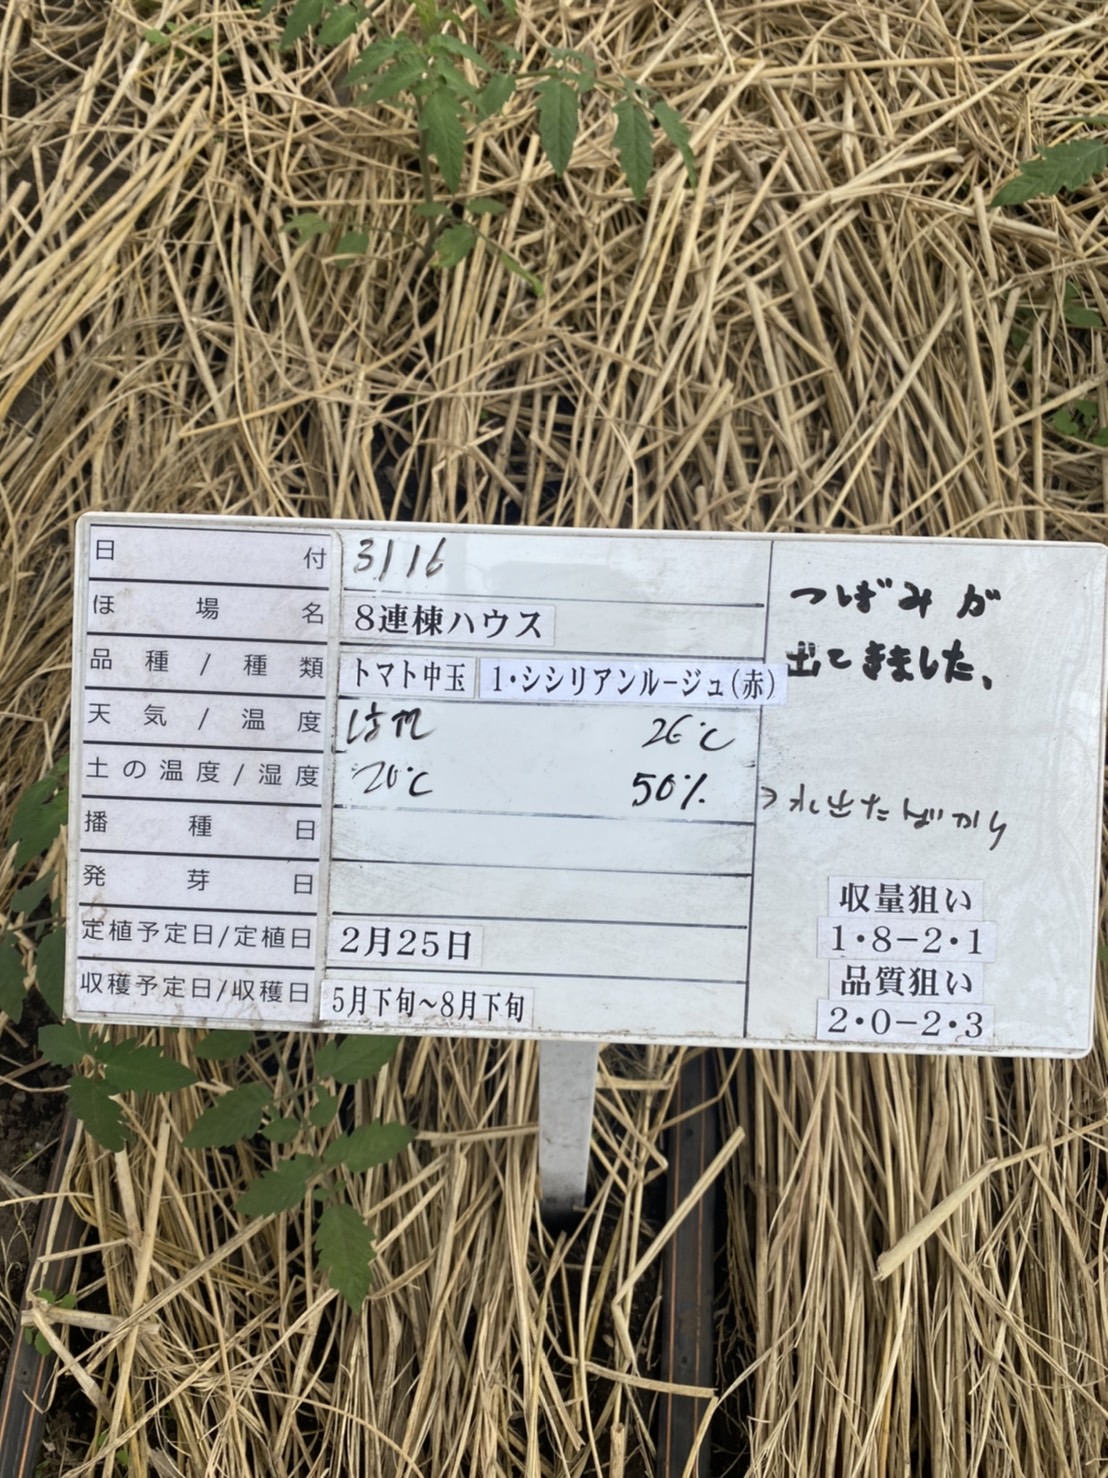 日付 3/16
ほ場名 8連棟ハウス
品種/種類 トマト中玉 1・シシリアンルージュ(赤)
天気/温度 はれ 26℃
土の温度/湿度 20℃ 50%
播種日
発芽日
定植予定日/定植日 2月25日
収穫予定日/収穫日 5月下旬〜8月下旬
つぼみが
出てきました、
出たばかり
収量狙い
1・8−2・1
品質狙い
2・0−2・3